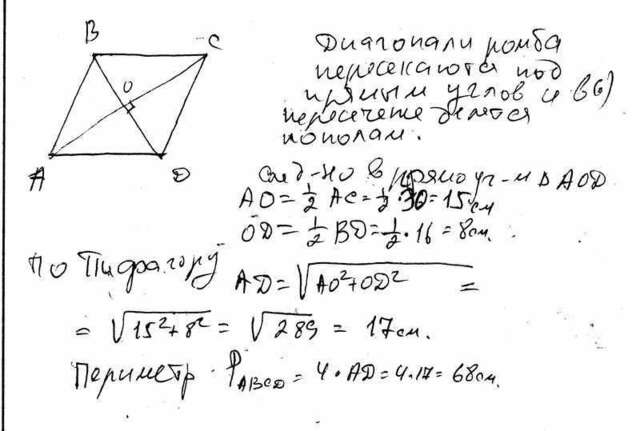 B
C
O
A
D
Диагонали ромба
пересекаются под
прямым углов и в б)
пересечете делятся
пополам.
след-но в прямоуг-м △ AOD
AO = 1/2 AC = 1/2 · 30 = 15 см
OD = 1/2 BD = 1/2 · 16 = 8 см.
по Пифагору
AD = √AO²+OD² =
= √15²+8² = √289 = 17 см.
Периметр P ABCD = 4 · AD = 4 · 17 = 68 см.